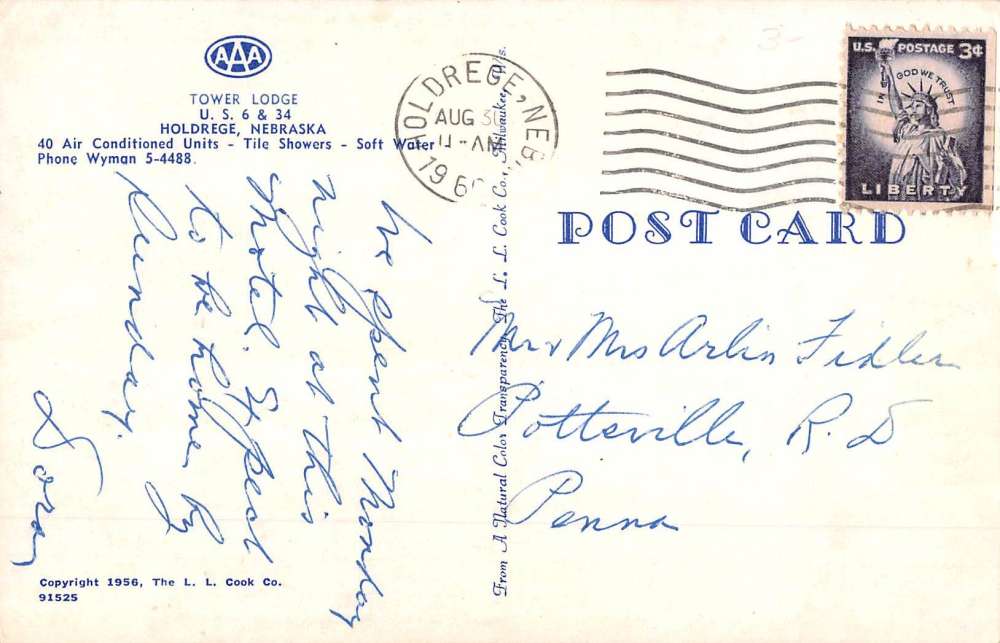 AAA
TOWER LODGE
U. S. 6 & 34
HOLDREGE, NEBRASKA
40 Air Conditioned Units - Tile Showers - Soft Water
Phone Wyman 5-4488.
We spent Monday
night at this
Motel. Expect
to be home by
Sunday.
Dora
Copyright 1956, The L. L. Cook Co.
91525
From A Natural Color Transparency, The L. L. Cook Co., Milwaukee, Wis.
HOLDREGE, NEB.
AUG 30
11-AM
1960
U.S. POSTAGE 3¢
IN GOD WE TRUST
LIBERTY
POST CARD
Mr & Mrs Arlin Fidler
Potteville, R. D
Penna
3-